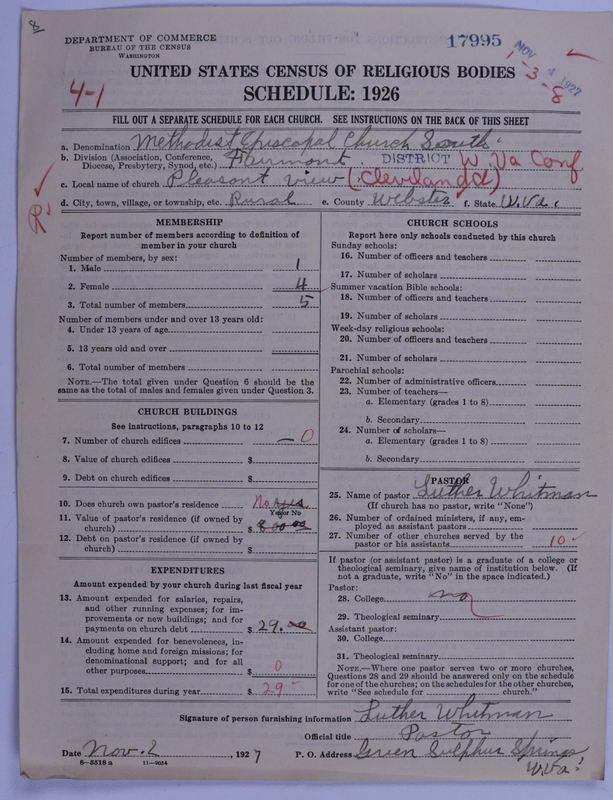 DEPARTMENT OF COMMERCE
BUREAU OF THE CENSUS
WASHINGTON
17995
NOV 4 1927
1-3-8
4-1
UNITED STATES CENSUS OF RELIGIOUS BODIES
SCHEDULE: 1926
FILL OUT A SEPARATE SCHEDULE FOR EACH CHURCH. SEE INSTRUCTIONS ON THE BACK OF THIS SHEET
a. Denomination Methodist Episcopal Church South
b. Division (Association, Conference, Diocese, Presbytery, Synod, etc.) Fairmont DISTRICT W. Va Conf
c. Local name of church Pleasant View (Cleveland)
d. City, town, village, or township, etc. Rural e. County Webster f. State W. Va.
R
MEMBERSHIP
Report number of members according to definition of
member in your church
Number of members, by sex:
1. Male 1
2. Female 4
3. Total number of members 5
Number of members under and over 13 years old:
4. Under 13 years of age
5. 13 years old and over
6. Total number of members
NOTE.—The total given under Question 6 should be
same as the total of males and females given under Question 3.
CHURCH BUILDINGS
See instructions, paragraphs 10 to 12
7. Number of church edifices — 0
8. Value of church edifices $
9. Debt on church edifices $
10. Does church own pastor's residence No yes
Yes or No
11. Value of pastor's residence (if owned by
church) $ 800.00
12. Debt on pastor's residence (if owned by
church) $
EXPENDITURES
Amount expended by your church during last fiscal year
13. Amount expended for salaries, repairs,
and other running expenses; for im-
provements or new buildings; and for
payments on church debt $ 29.00
14. Amount expended for benevolences, in-
cluding home and foreign missions; for
denominational support; and for all
other purposes $ 0
15. Total expenditures during year $ 29 -
CHURCH SCHOOLS
Report here only schools conducted by this church
Sunday schools:
16. Number of officers and teachers
17. Number of scholars
Summer vacation Bible schools:
18. Number of officers and teachers
19. Number of scholars
Week-day religious schools:
20. Number of officers and teachers
21. Number of scholars
Parochial schools:
22. Number of administrative officers
23. Number of teachers—
a. Elementary (grades 1 to 8)
b. Secondary
24. Number of scholars—
a. Elementary (grades 1 to 8)
b. Secondary
PASTOR
25. Name of pastor Luther Whitman
(If church has no pastor, write "None")
26. Number of ordained ministers, if any, em-
ployed as assistant pastors
27. Number of other churches served by the
pastor or his assistants 10
If pastor (or assistant pastor) is a graduate of a college or
theological seminary, give name of institution below. (If
not a graduate, write "No" in the space indicated.)
Pastor:
28. College no
29. Theological seminary
Assistant pastor:
30. College
31. Theological seminary
NOTE.—Where one pastor serves two or more churches,
Questions 28 and 29 should be answered only on the schedule
for one of the churches; on the schedules for the other churches,
write "See schedule for church."
Signature of person furnishing information Luther Whitman
Official title Pastor
Date Nov. 2, 1927 P. O. Address Green Sulphur Springs
W. Va.
8—5318 a 11—9034